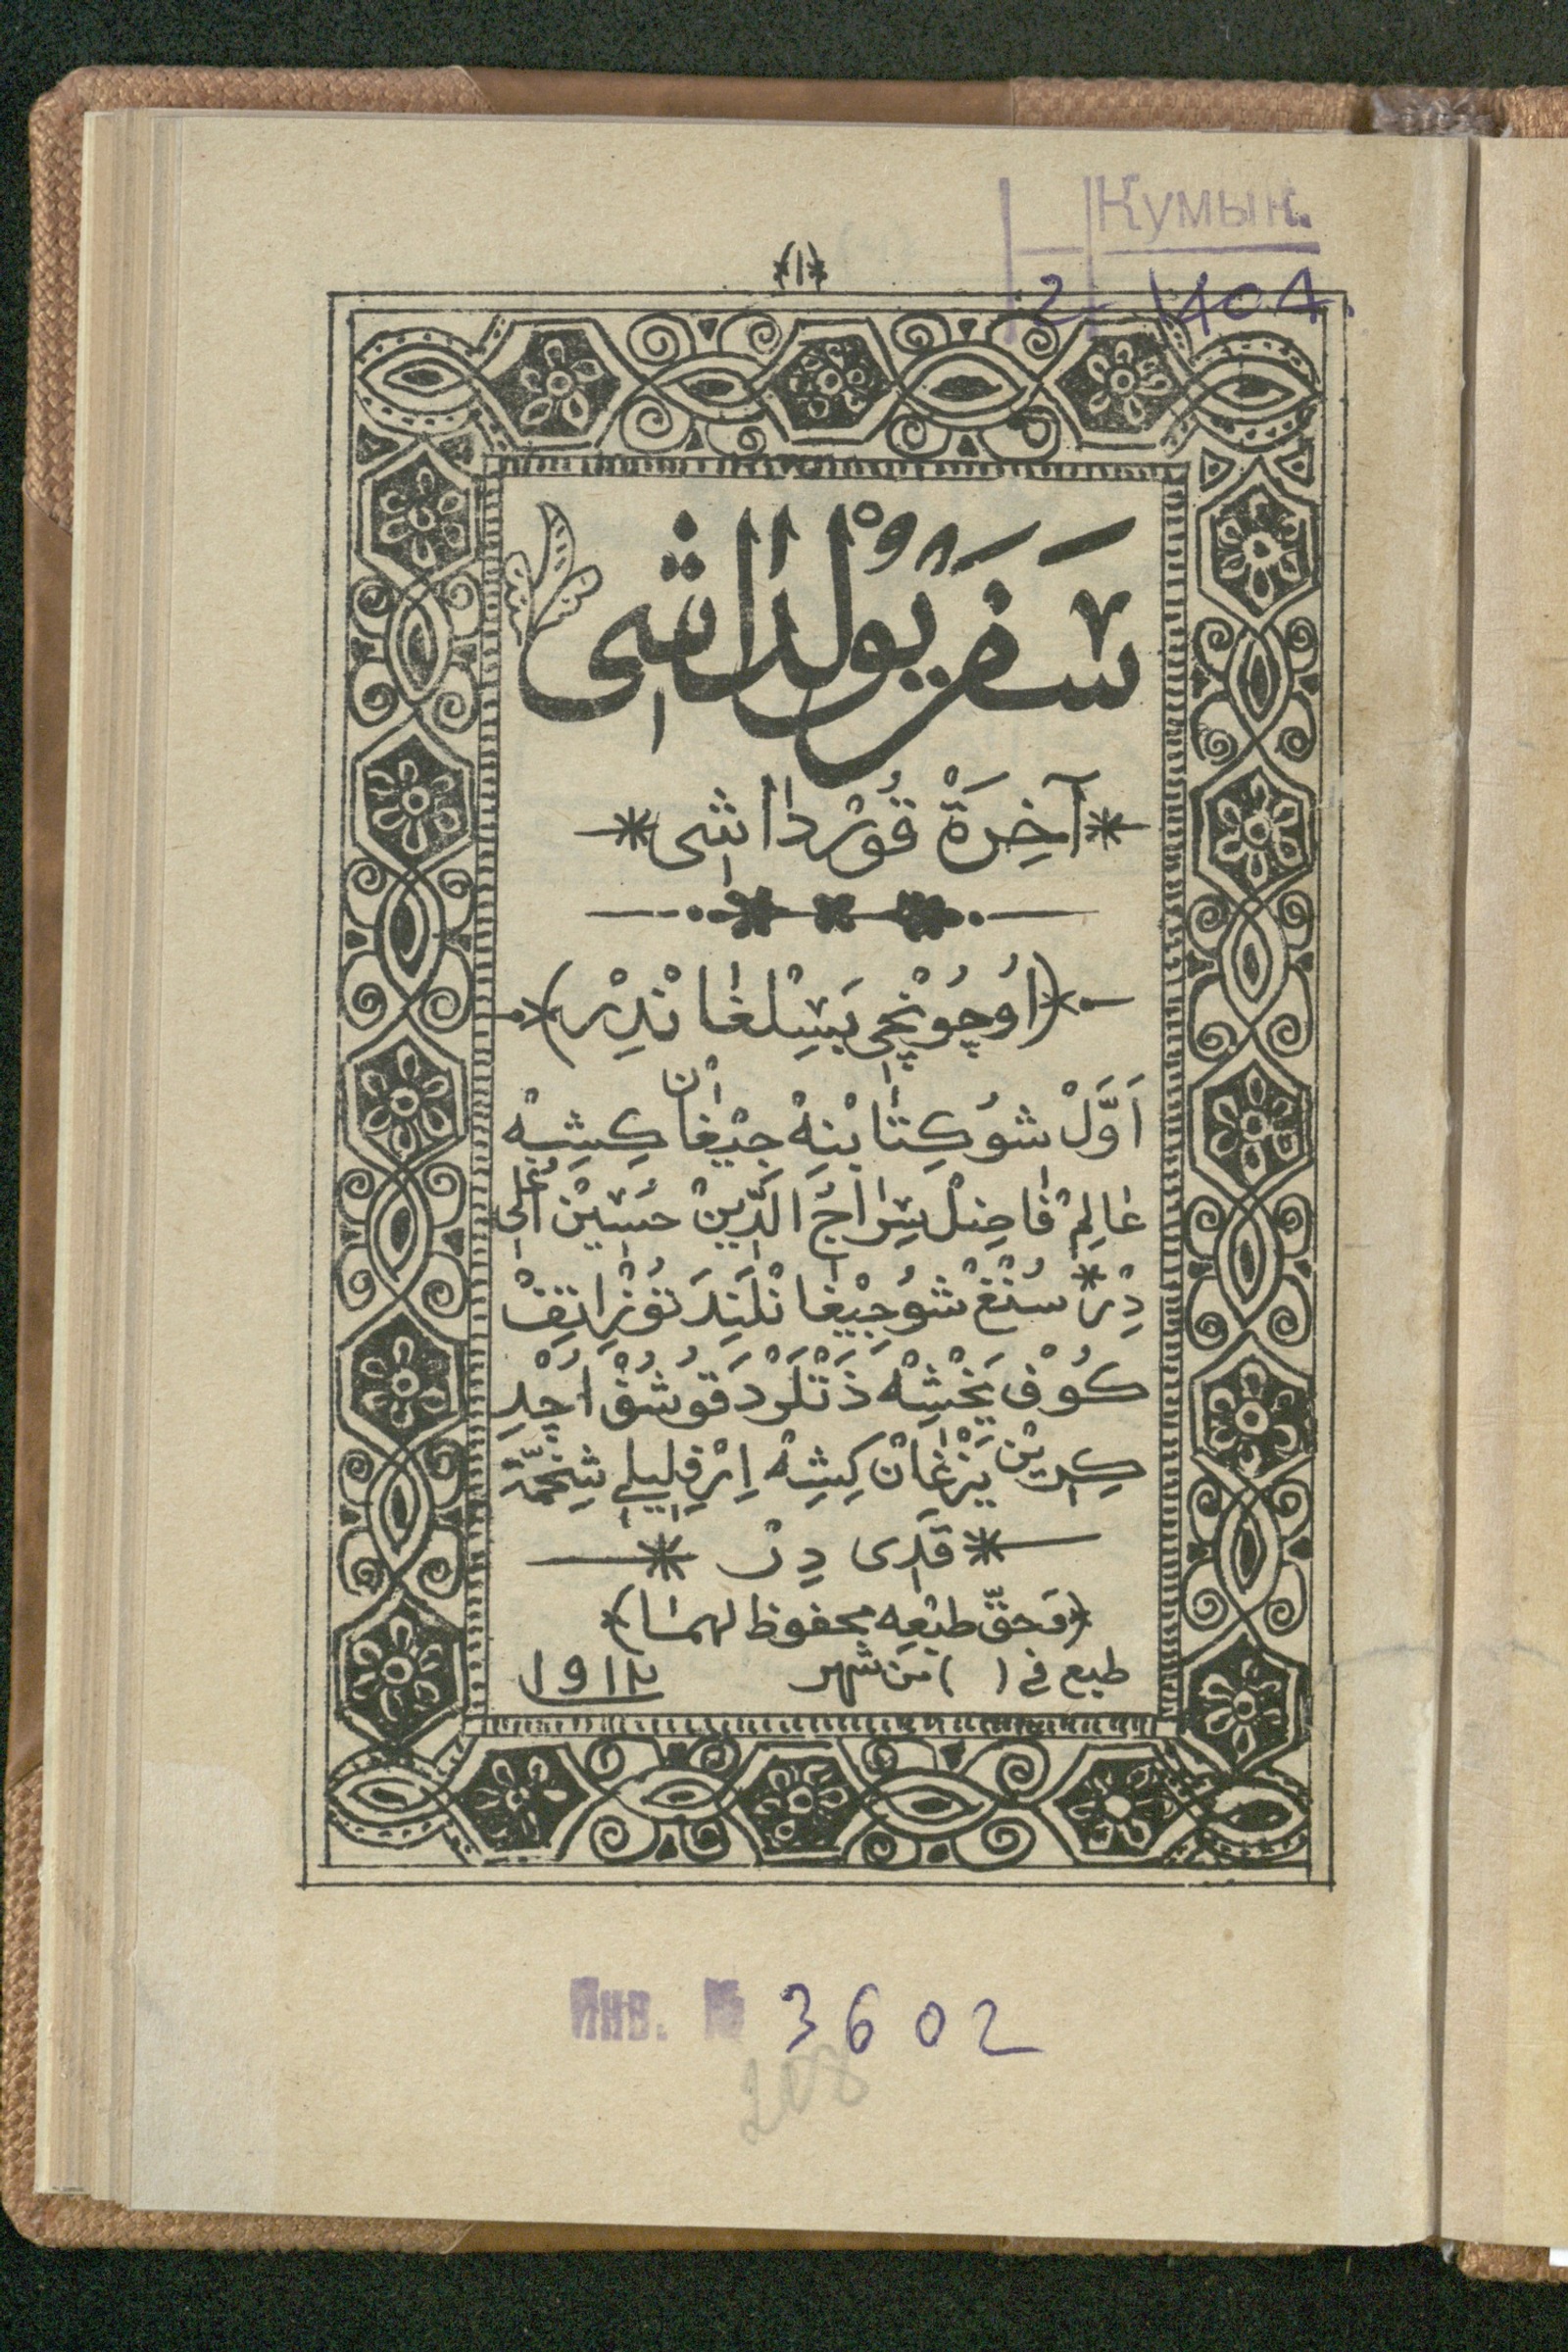 Кумык.
2 1404.
(١)
سَفَرْ يُوْلدٰاشِى
آخِرَةْ قُوْرْدٰاشِى
(اُوچُوُنْچِى بَسِلْغٰانْدِرْ)
اَوَّلْ شُو كِتٰابْنِهْ جِيْغٰانْ كِشِيْهْ
عٰالِمْ فٰاضِلْ سِرٰاجُ الدِّينْ حُسَيْنْ اُغْلِى
دِرْ * سُنْغْ شُو جِيْغٰانْلَنِدَ تُوْزٰاتِفْ
كُوْفْ يَخْشِهْ ذَتْلَرْدَ قُوْشُفْ اُچْدِ
كِرِيْنْ يَزْغٰانْ كِشِهْ اِرْفِلِيلِى شِيْخَمَّدْ
قَدِى دِرْ
(وَحَقّ طَبْعِه محفوظ لهما)
طبع فى ( ) مَن شهر ١٩١٢
Инв. № 3602
208